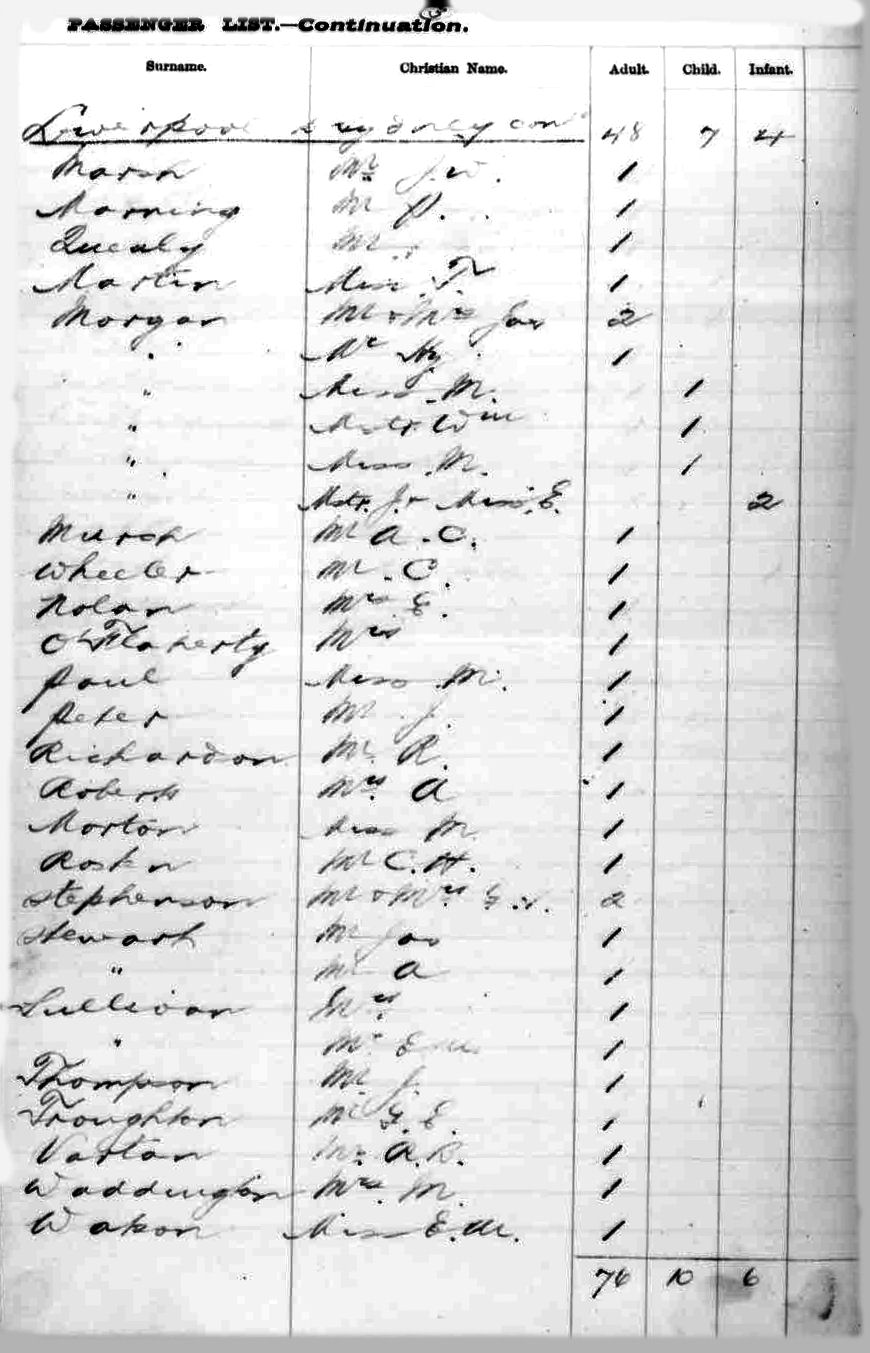 PASSENGER LIST.—Continuation.
Surname. Christian Name. Adult. Child. Infant.
Liverpool & Sydney cont 48 7 4
Marsh Mr J.W. 1
Morning Mr P. 1
Quealy Mr 1
Martin Miss T. 1
Morgan Mr & Mrs Jas 2
" Mr Hy 1
" Miss M. 1
" Mstr Wm 1
" Miss M. 1
" Mstr. J. & Miss E. 2
Mursh Mr A.C. 1
Wheeler Mr. C. 1
Nolan Mrs E. 1
O'Flaherty Mrs 1
Paul Miss M. 1
Peter Mr J. 1
Richardson Mr. R. 1
Roberts Mrs. A 1
Morton Miss M. 1
Mr C.H. 1
Stephenson Mr & Mrs 2
Stewart Mr Jas 1
" Mr A 1
Sullivan Mrs 1
" 1
Thompson Mr J. 1
Troughton Mr G.E. 1
Vartan Mr. A.B. 1
Waddington Mrs. M. 1
Miss E.M. 1
76 10 6